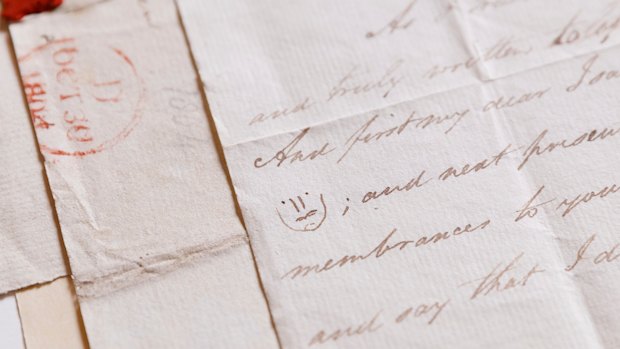 B
1804
1804
As
and truly written
And first my dear
; and next
membrances to you
and say that I